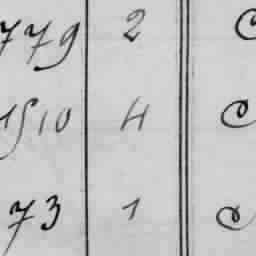 779 2 C
1510 4 C
73 1 C